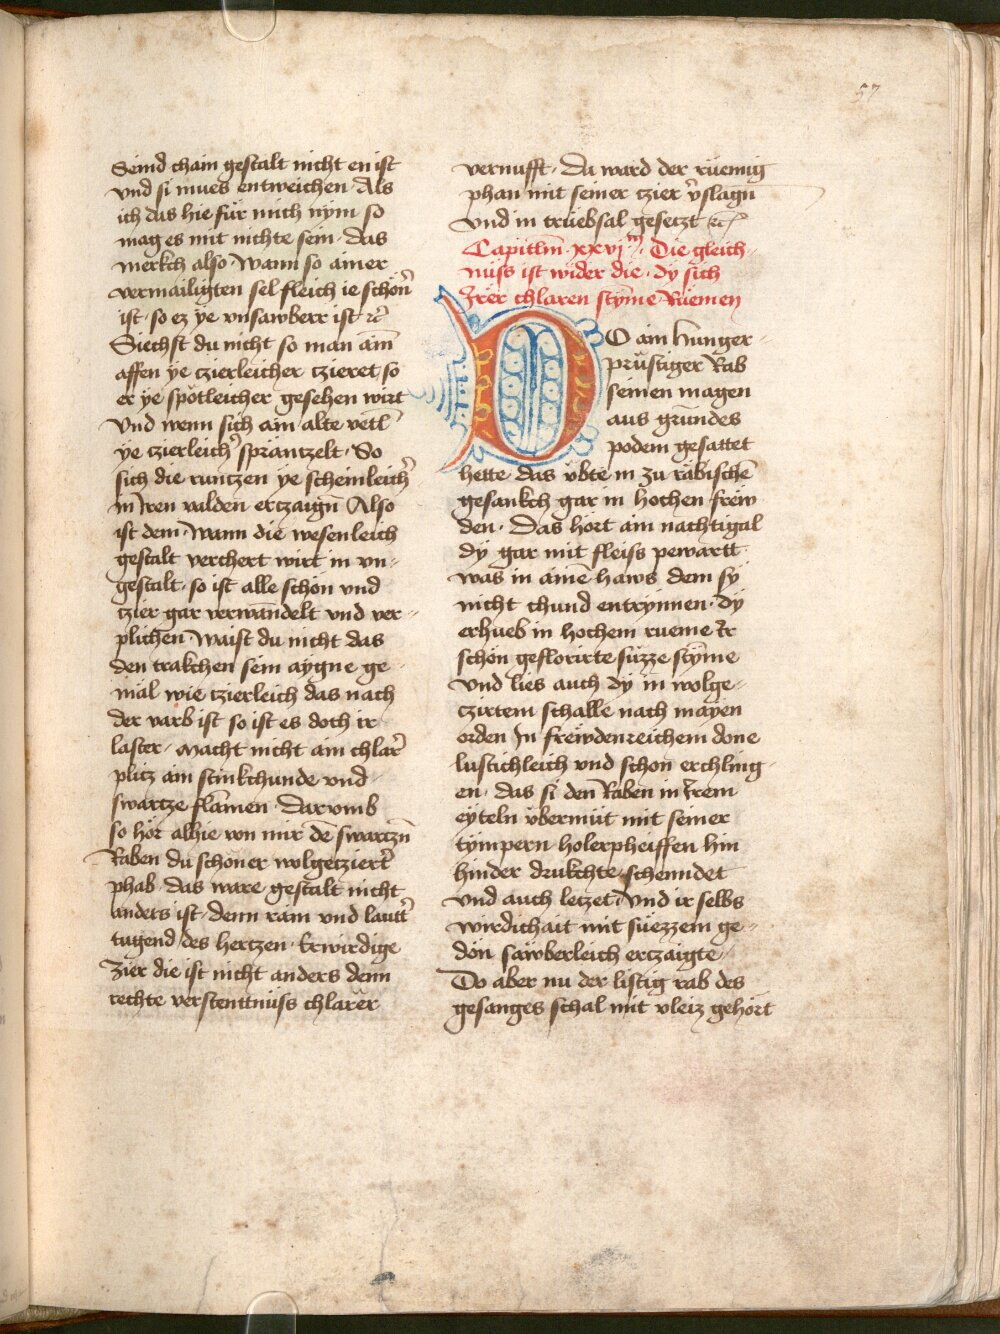 57
Seind chain gestalt nicht en ist
vnd si mues entweichen · Als
ich das hie für mich nÿm so
mag es mit nichte sein · das
merkch also · Wann so ainer
vermailigten sel fleich ie schön̄
ist · so ez ÿe vnsawberr ist ꝛc̄
Siechst du nicht so man aim̄
affen ÿe czierleicher czieret so
er ÿe spötleicher gesehen wirt
Vnd wenn sich ain alte vetl̄
ÿe czierleich̄ spräntzelt · So
sich die runtzen ÿe scheinleich̄
in Iren valden erczaign̄ Also
ist dem · Wann die wesenleich
gestalt verchert wirt in vn-
gestalt · so ist alle schön vnd
czier gar verwandelt vnd ver-
plichen · Waist du nicht das
den trakchen sein aÿgne ge-
mäl wie czierleich das nach
der varb ist so ist es doch ir
laster · Macht nicht ain chlar̄
plicz ain stinkchunde vnd
swartze flamen · Darvmb
so hör alhie von mir de̅ swarczn̄
Raben du schöner wolgecziert̄
phab · das ware gestalt nicht
anders ist · denn rain vnd lautt̄
tugend des hertzen · Erwirdige
Zier die ist nicht anders denn
rechte verstenttnüss chlarer
vernufft · Da ward der rüemig
phan mit seiner czier v̄slagn
Vnd in trüebsal gesetzt ꝛc̄
Capitlm̄ · xxvi · m̄ · Die gleich-
nüss ist wider die · dÿ sich
Irer chlaren stÿme Rüemen
DO ain hunger-
prüstiger Rab
seinen magen
aus grundes
podem gesattet
hette das übte in zu rabischem̄
gesankch gar in hochen frew-
den · Das hort ain nachtigal
dÿ gar mit fleiss pewartt
was in aime̅ haws dem sÿ
nicht chund entrÿnnen · dÿ
erhueb in hochem rueme Ir
schön geflorirte süzze stÿme
Vnd lies auch dÿ in wolge-
czirtem schalle nach maÿen
orden In frewdenreichem done
lustichleich vnd schon erchling-
en · das si den Raben in Irem
eÿteln übermüt mit seiner
tÿmpern holerpheiffen hin
hinder drukchte schenndet
vnd auch letzet · Vnd ir selbs
wirdichait mit süezzem ge-
dön sawberleich erczaigte
Do aber nu der listig rab des
gesanges schal mit vleiz gehört